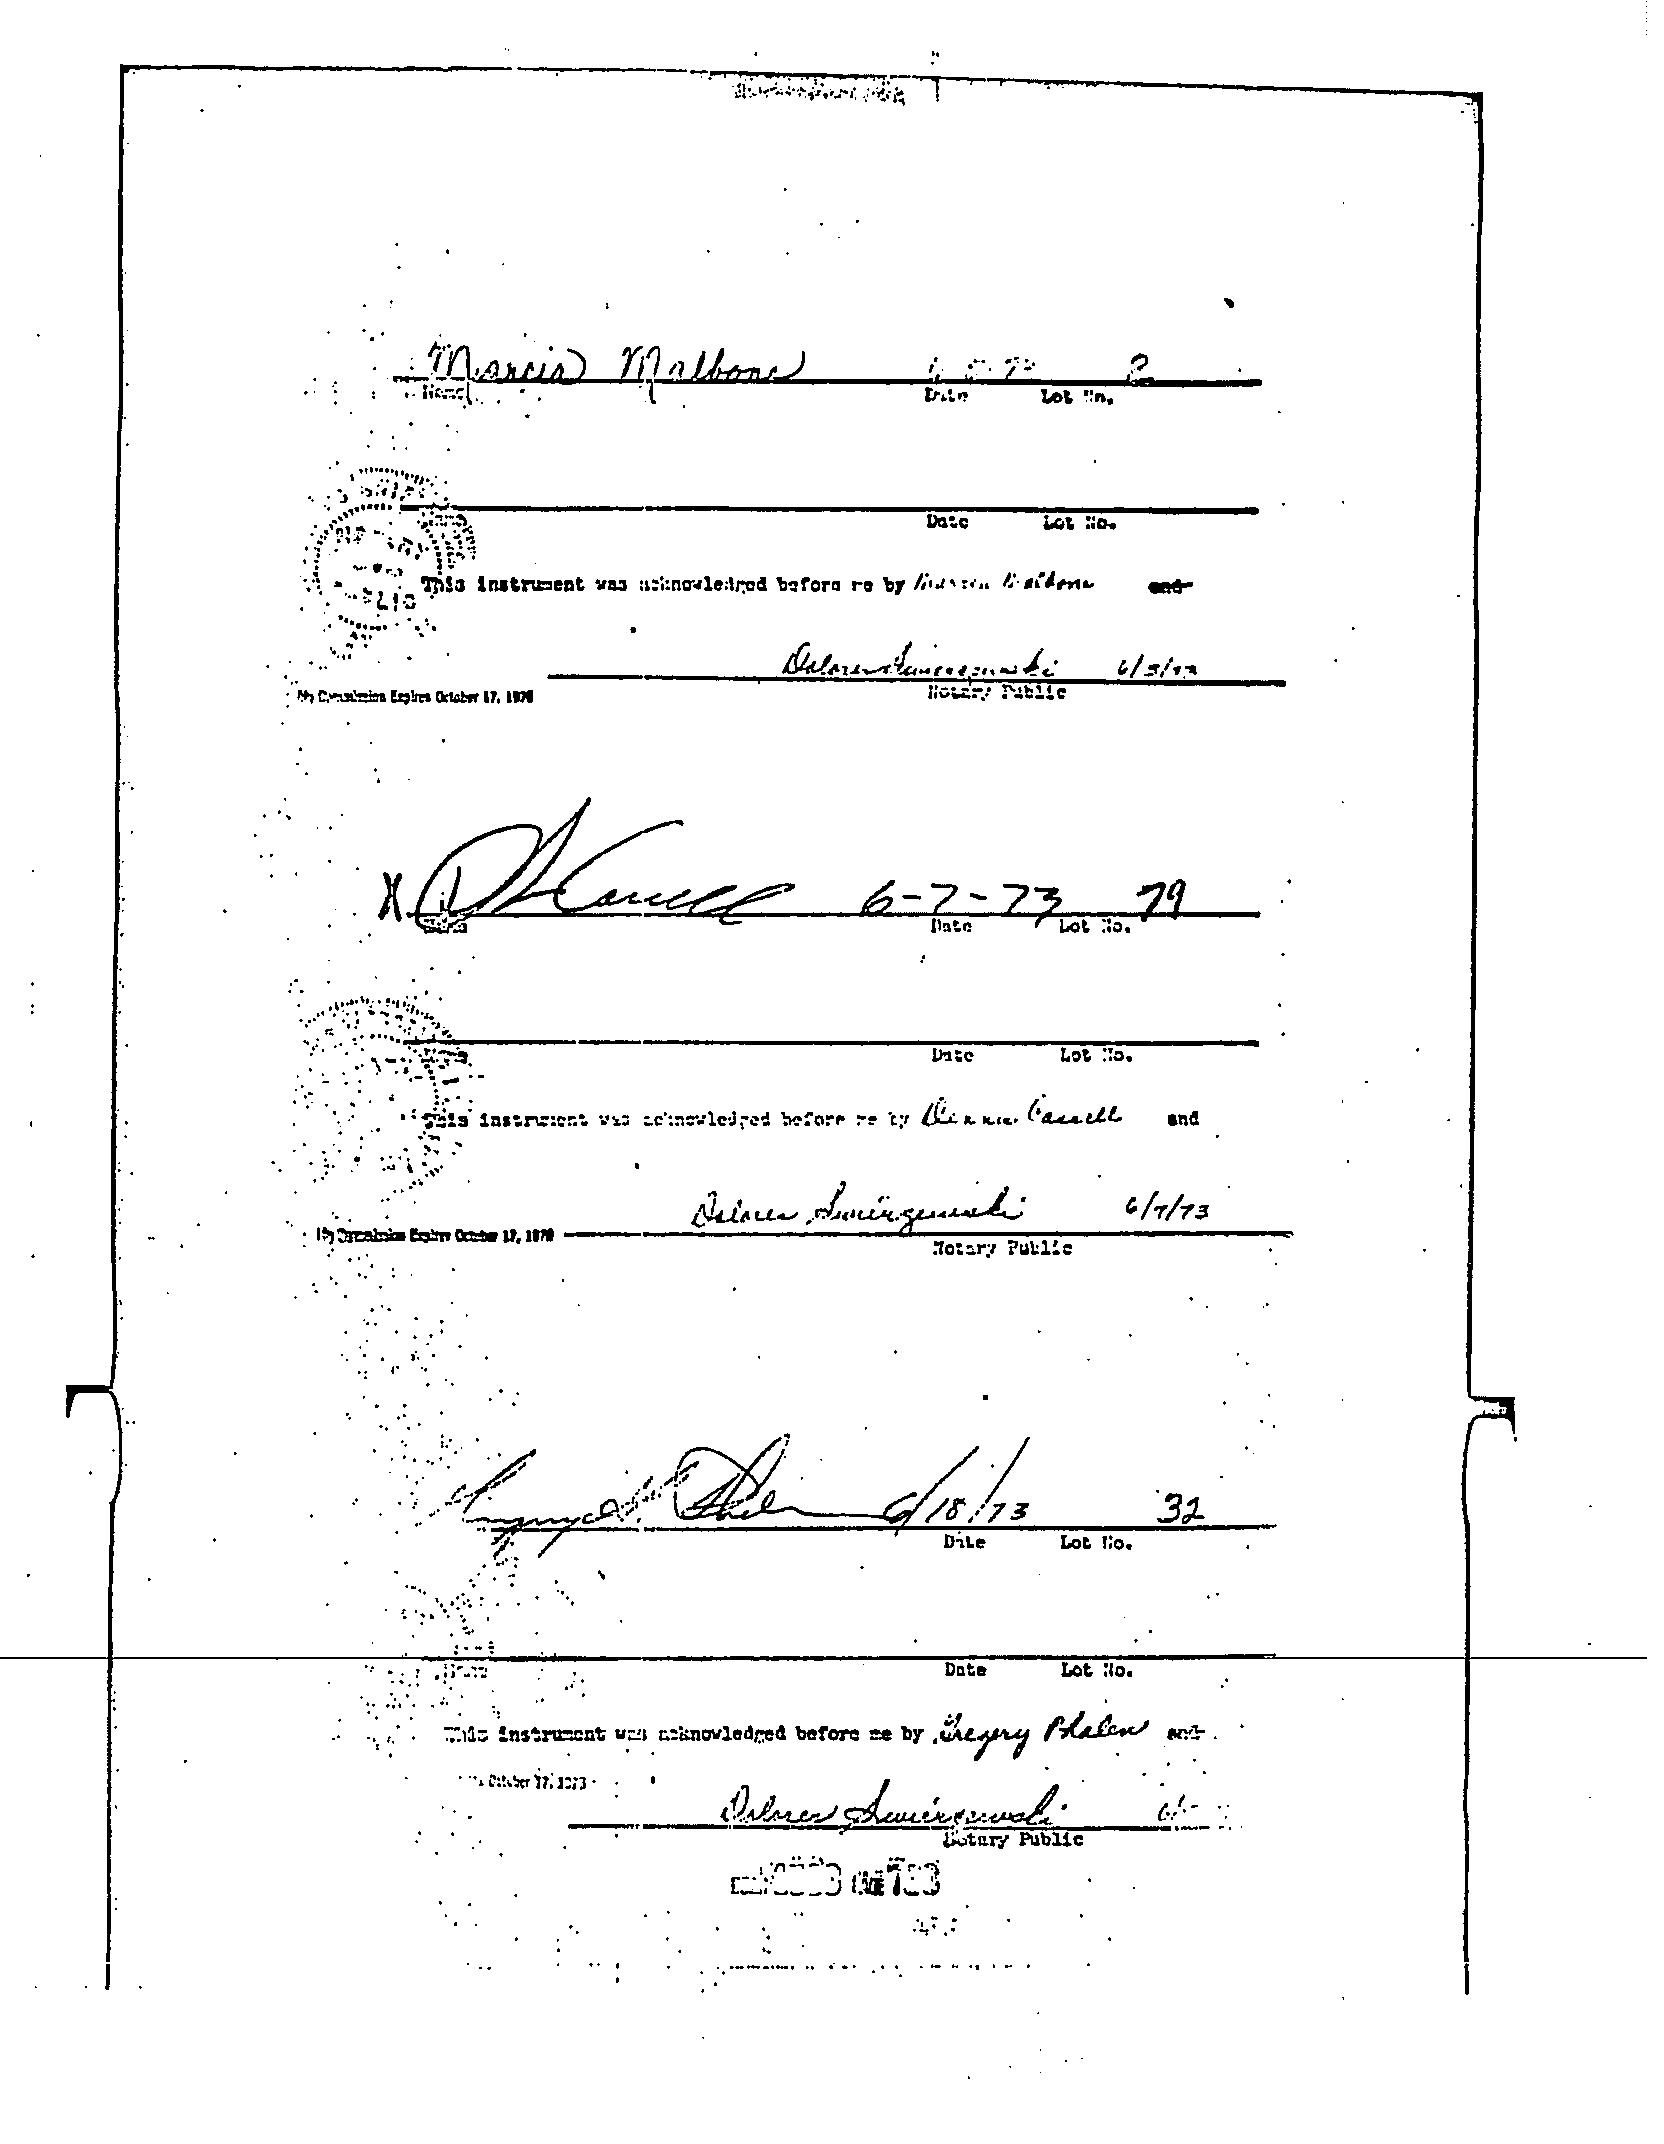 Marcia Malbone 2
Name Date Lot No.
Date Lot No.
This instrument was acknowledged before me by Marcia Malbone and
Dolores Swierzewski 6/5/73
Notary Public
My Commission Expires October 17, 1976
X D Carrell 6-7-73 79
Name Date Lot No.
Date Lot No.
This instrument was acknowledged before me by Carrell and
Dolores Swierzewski 6/7/73
My Commission Expires October 17, 1976
Notary Public
Phalen 6/18/73 32
Date Lot No.
Name Date Lot No.
This instrument was acknowledged before me by Gregory Phalen and
October 17,
Dolores Swierzewski
Notary Public